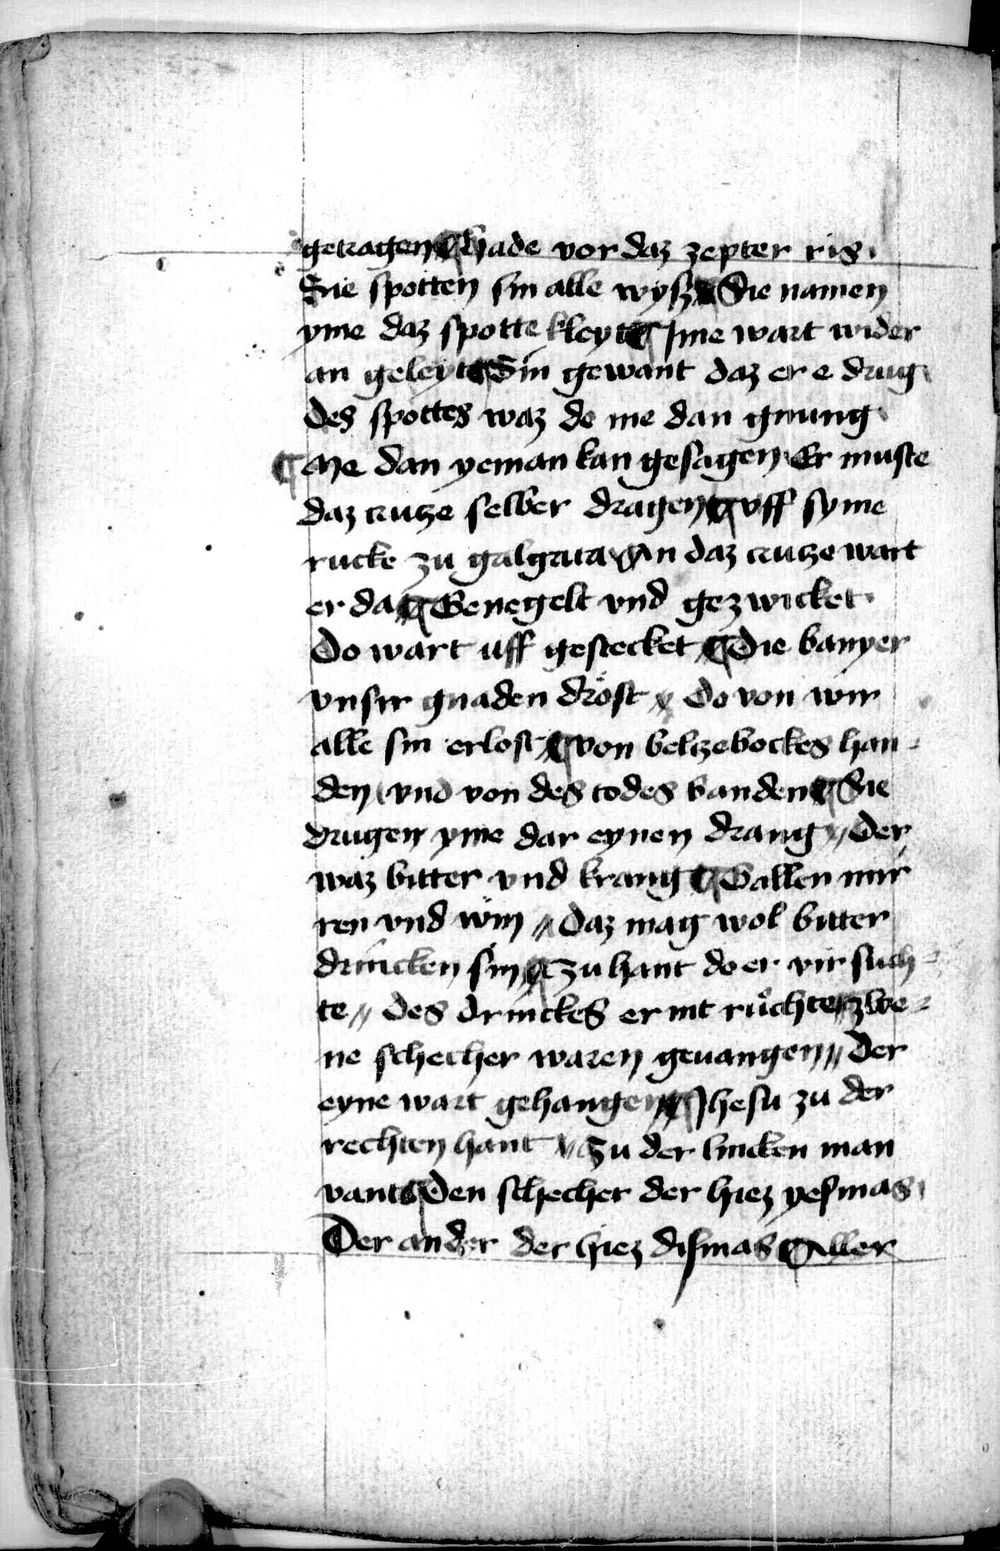 getragen ¶ hade vor daz zepter ris.
Sie spotten sin alle wysz ¶ Sie namen
yme daz spotte kleyt ¶ Ime wart wider
an geleyt ¶ Sin gewant daz er e drug.
des spottes waz do me dan gnung.
¶ Me dan yeman kan gesagen. Er muste
daz crutze selber dragen ¶ vff syme
rucke zu galgata ¶ An daz crutze wart
er da ¶ Genegelt vnd gezwicket.
Do wart uff gestecket ¶ Die banyer
vnsir gnaden drost // Do von wir
alle sin erlost ¶ von beltzebockes han-
den, vnd von des todes banden ¶ Sie
drugen yme dar eynen drang // Der
waz bitter vnd krang ¶ Gallen mir
ren vnd win // Daz mag wol bitter
drincken sin ¶ Zu hant do er vir such-
te // des drinckes er nit růchte // zwe-
ne schecher waren geuangen // Der
eyne wart gehangen ¶ Jhesu zu der
rechten hant // Zu der lincken man
vant ¶ Den schecher der hiez yesmas.
Der ander der hiez dismas ¶ Aller